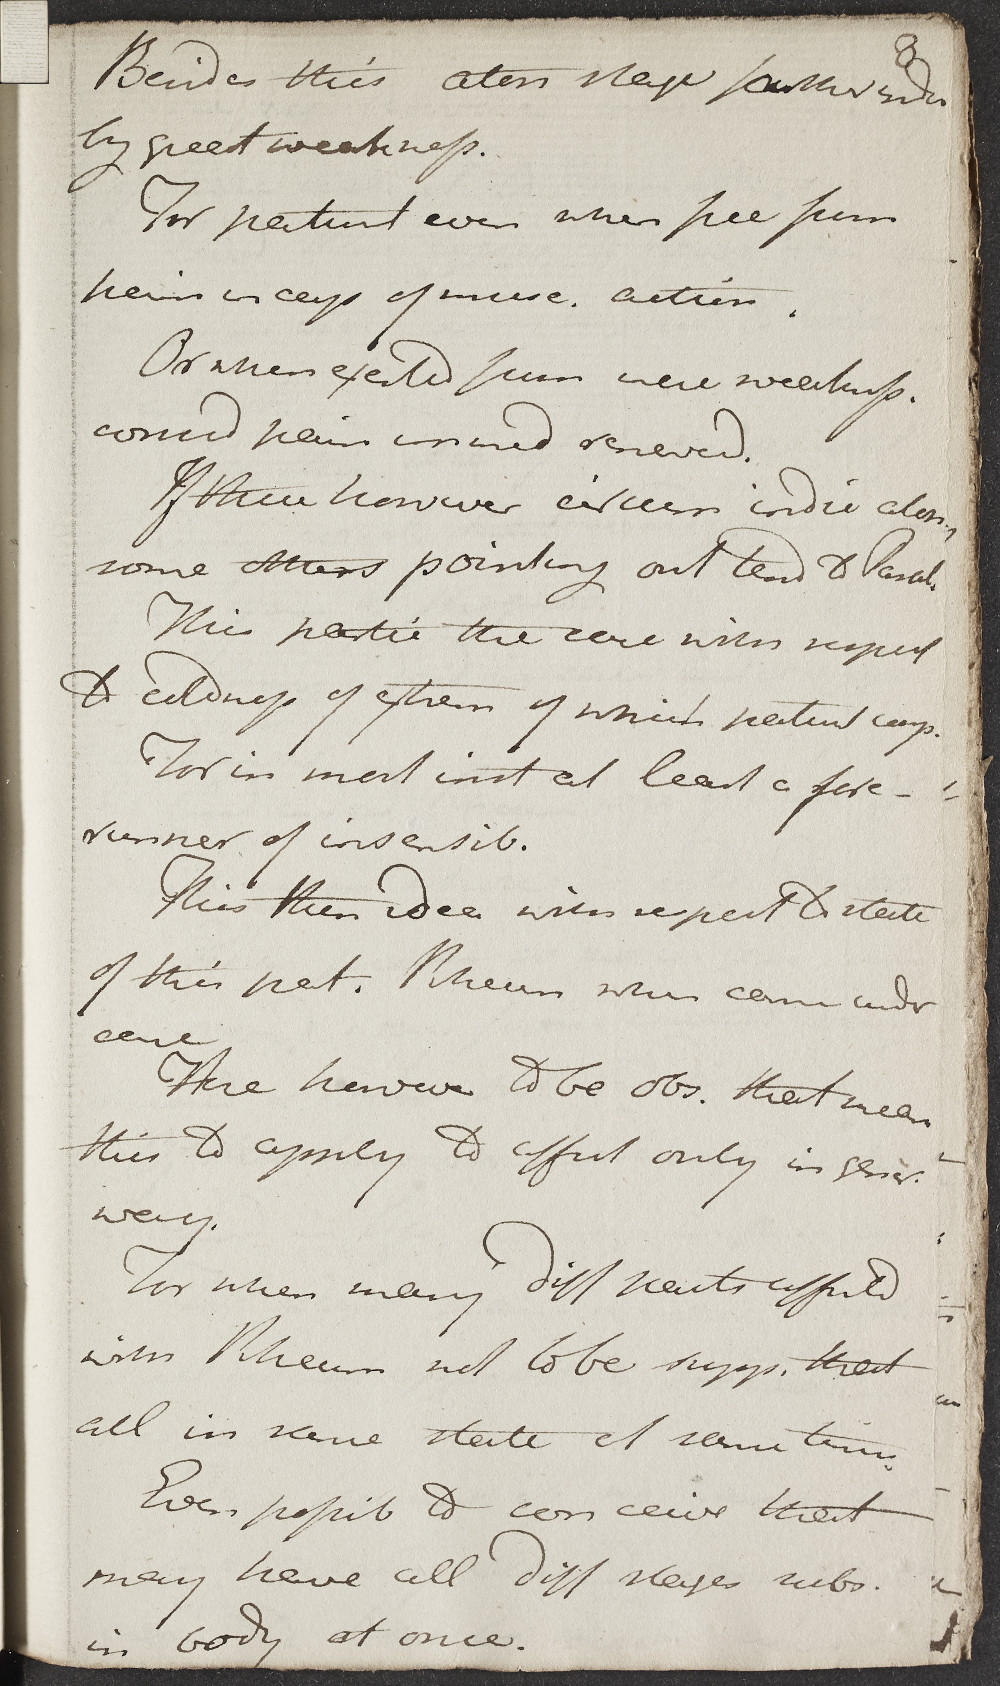 8
Besides this aton stage further indic
by great weakness.
For patient even when free from
pain incap of musc. action.
Or when exerted from mere weakness.
consid pain indeed renewed.
If these however circum indic aton,
some others pointing out tend to Paral.
This partic the case with respect
to coldness of extrem of which patient comp.
For in most inst at least a fore-
runner of insensib.
This then idea with respect to state
of this pat. Rheum when came under
care
Here however to be obs. that mean
this to apply to affect only in gener.
way.
For when many diff parts affected
with Rheum not to be supp. that
all in same state at same time.
Even possib to conceive that
may have all diff stages subs.
in body at once.